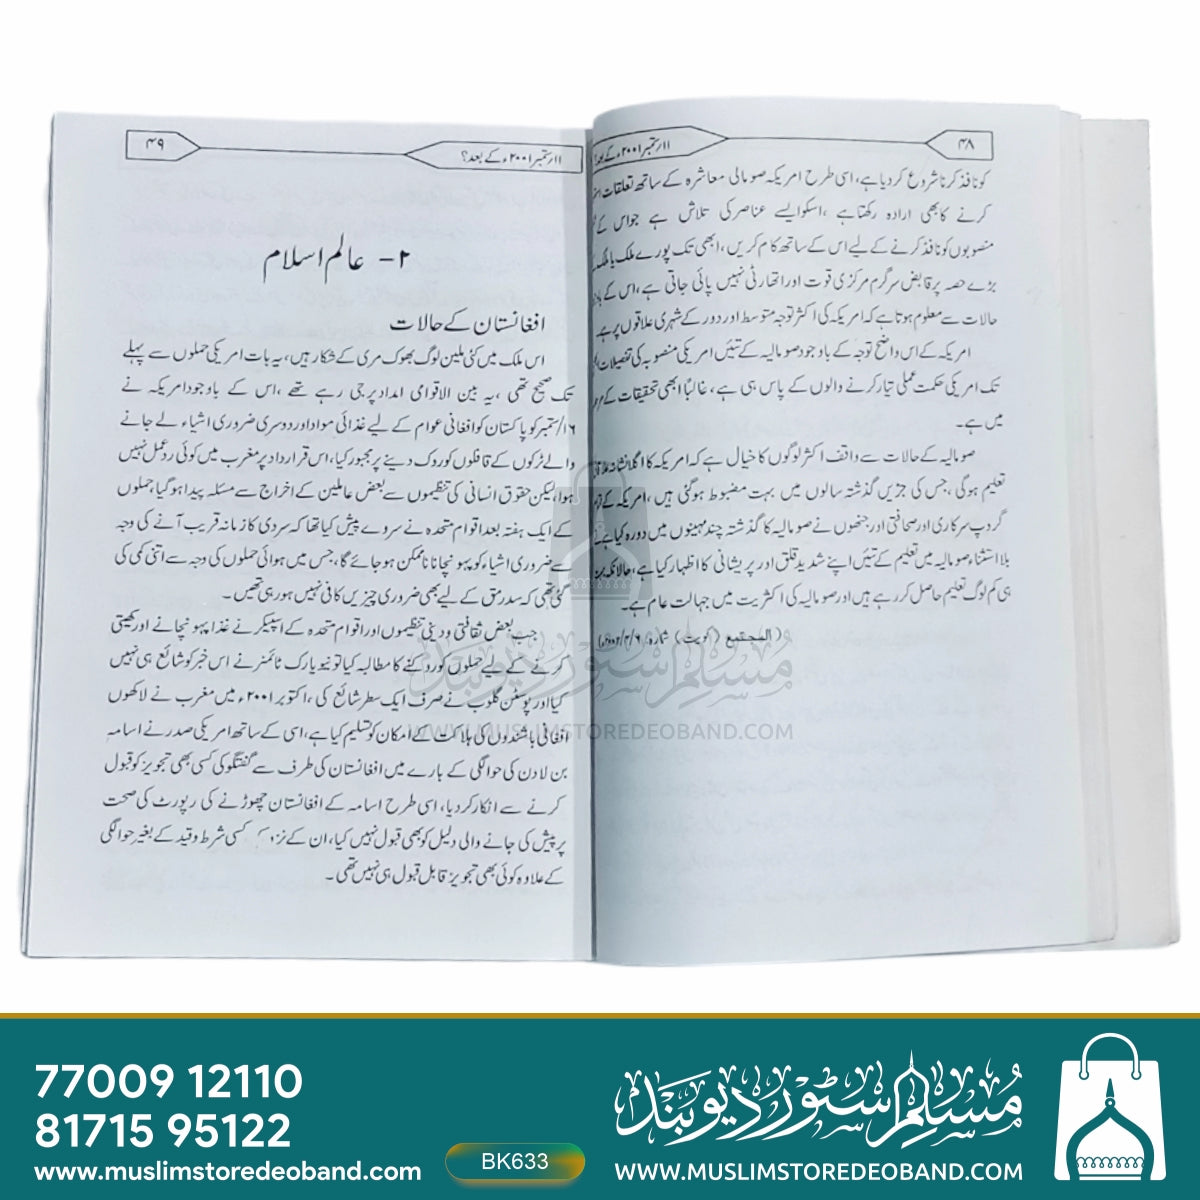 ۴۸
۱۱/ستمبر ۲۰۰۱ء کے بعد؟
کو نافذ کرنا شروع کردیا ہے، اسی طرح امریکہ صومالی معاشرہ کے ساتھ تعلقات
کرنے کا بھی ارادہ رکھتا ہے، اسکو ایسے عناصر کی تلاش ہے جو اس کے
منصوبوں کو نافذ کرنے کے لیے اس کے ساتھ کام کریں، ابھی تک پورے ملک یا ملک
بڑے حصہ پر قابض سرگرم مرکزی قوت اور اتھارٹی نہیں پائی جاتی ہے، اس کے
حالات سے معلوم ہوتا ہے کہ امریکہ کی اکثر توجہ متوسط اور دور کے شہری علاقوں پر ہے
امریکہ کے اس واضح توجہ کے باوجود صومالیہ کے تئیں امریکی منصوبہ کی تفصیلات
تک امریکی حکمت عملی تیار کرنے والوں کے پاس ہی ہے، غالباً ابھی تحقیقات کے
میں ہے۔
صومالیہ کے حالات سے واقف اکثر لوگوں کا خیال ہے کہ امریکہ کا اگلا نشانہ علاقائی
تعلیم ہوگی، جس کی جڑیں گذشتہ سالوں میں بہت مضبوط ہوگئی ہیں، امریکہ کے
گردپ سرکاری اور صحافتی اور جنھوں نے صومالیہ کا گذشتہ چند مہینوں میں دورہ کیا ہے
بلا استثناء صومالیہ میں تعلیم کے تئیں اپنے شدید قلق اور پریشانی کا اظہار کیا ہے، حالانکہ
ہی کم لوگ تعلیم حاصل کر رہے ہیں اور صومالیہ کی اکثریت میں جہالت عام ہے۔
(المجتمع (کویت) شمارہ ۲۰۰۲/۲/۶ء)
۴۹
۱۱/ستمبر ۲۰۰۱ء کے بعد؟
۲- عالم اسلام
افغانستان کے حالات
اس ملک میں کئی ملین لوگ بھوک مری کے شکار ہیں، یہ بات امریکی حملوں سے پہلے
تک صحیح تھی، یہ بین الاقوامی امداد پر جی رہے تھے، اس کے باوجود امریکہ نے
۱۶/ستمبر کو پاکستان کو افغانی عوام کے لیے غذائی مواد اور دوسری ضروری اشیاء لے جانے
والے ٹرکوں کے قافلوں کو روک دینے پر مجبور کیا، اس قرارداد پر مغرب میں کوئی رد عمل نہیں
ہوا، لیکن حقوق انسانی کی تنظیموں سے بعض عاملین کے اخراج سے مسئلہ پیدا ہوگیا، حملوں
کے ایک ہفتہ بعد اقوام متحدہ نے سروے پیش کیا تھا کہ سردی کا زمانہ قریب آنے کی وجہ
سے ضروری اشیاء کو پہونچانا ناممکن ہوجائے گا، جس میں ہوائی حملوں کی وجہ سے اتنی کمی کی
گئی تھی کہ سد رمق کے لیے بھی ضروری چیزیں کافی نہیں ہو رہی تھیں۔
جب بعض ثقافتی و دینی تنظیموں اور اقوام متحدہ کے اسپیکر نے غذا پہونچانے اور کھیتی
کرنے کے لیے حملوں کو روکنے کا مطالبہ کیا تو نیویارک ٹائمز نے اس خبر کو شائع ہی نہیں
کیا اور بوسٹن گلوب نے صرف ایک سطر شائع کی، اکتوبر ۲۰۰۱ء میں مغرب نے لاکھوں
افغانی باشندوں کی ہلاکت کے امکان کو تسلیم کیا ہے، اسی کے ساتھ امریکی صدر نے اسامہ
بن لادن کی حوالگی کے بارے میں افغانستان کی طرف سے گفتگو کی کسی بھی تجویز کو قبول
کرنے سے انکار کردیا، اسی طرح اسامہ کے افغانستان چھوڑنے کی رپورٹ کی صحت
پر پیش کی جانے والی دلیل کو بھی قبول نہیں کیا، ان کے کسی شرط و قید کے بغیر حوالگی
کے علاوہ کوئی بھی تجویز قابل قبول ہی نہیں تھی۔
مسلم سٹور دیوبند
WWW.MUSLIMSTOREDEOBAND.COM
77009 12110
81715 95122
www.muslimstoredeoband.com
BK633
مسلم سٹور دیوبند
WWW.MUSLIMSTOREDEOBAND.COM